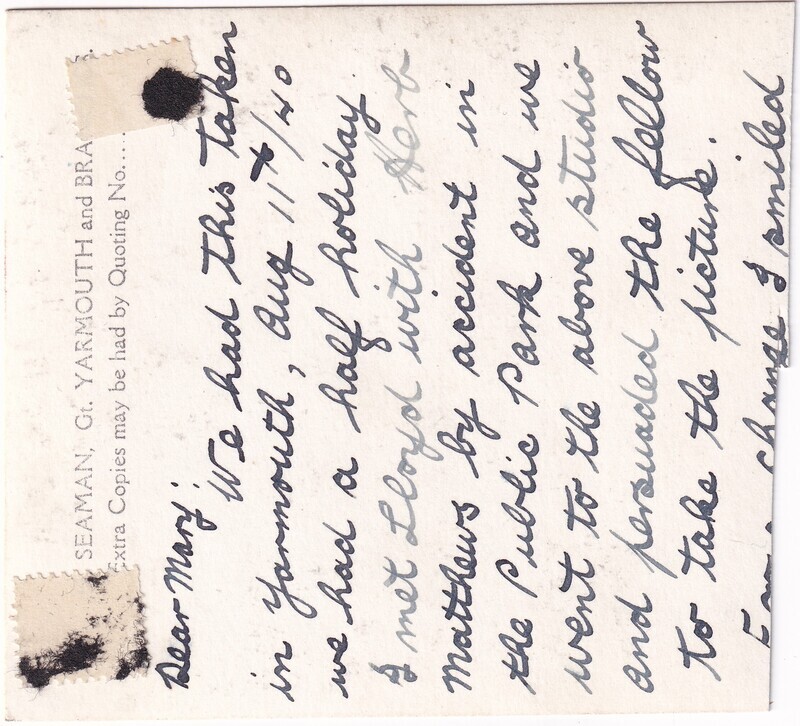 SEAMAN, Gt. YARMOUTH and BRA
Extra Copies may be had by Quoting No.....
Dear Mary'
We had this taken
in Yarmouth, Aug 11th/40
we had a half holiday.
I met Lloyd with Herb
Matthews by accident in
the Public Park and we
went to the above studio
and persuaded the fellow
to take the picture.
change I smiled